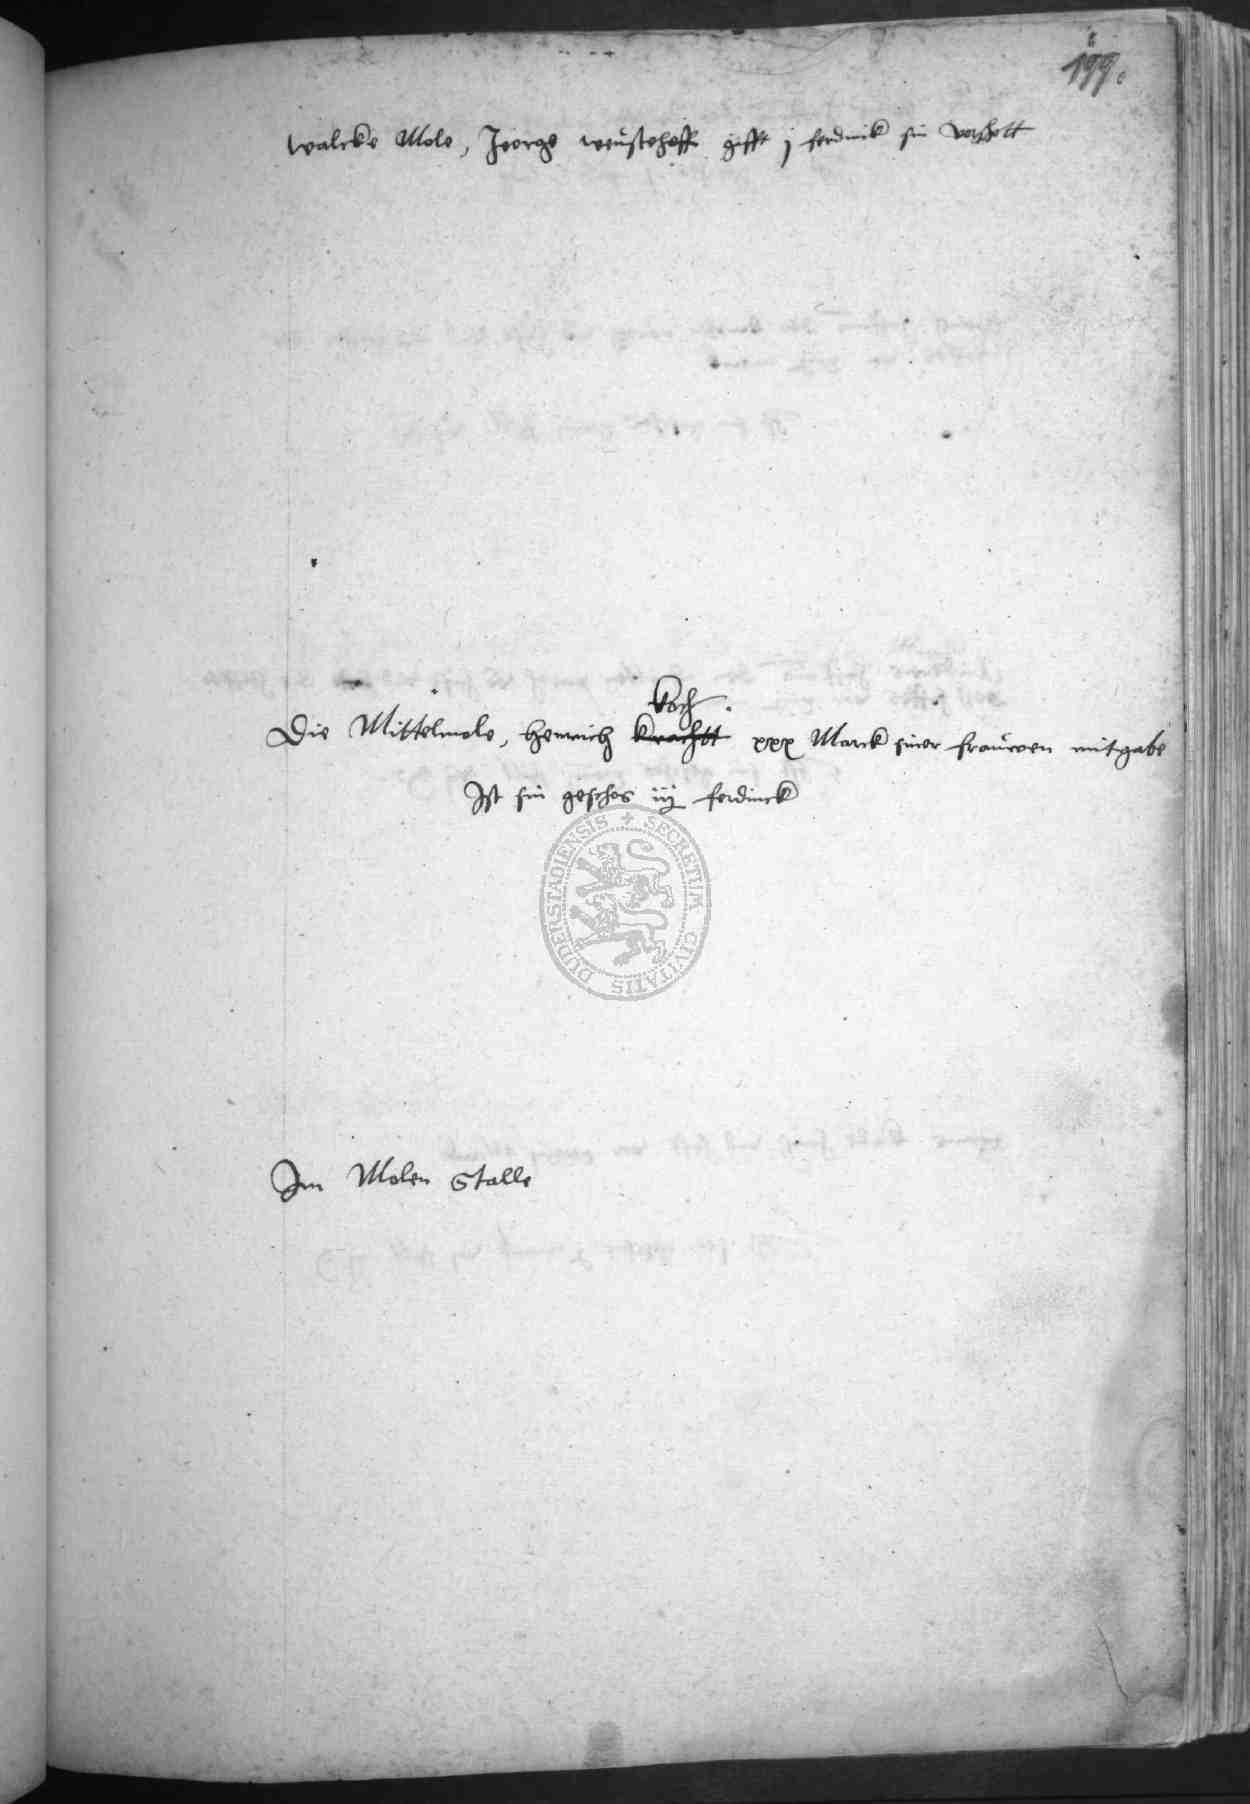 199.
walcke Mole, Jeorge weustehoff gifft j ferdinck sin vorschott
Koch
Die Mittelmole, Henrich krachtt xxx Marck siner frauwen mitgabe
Ist sin geschos iij ferdinck
SECRETUM CIVITATIS DUDERSTADIENSIS
Im Molen Stalle